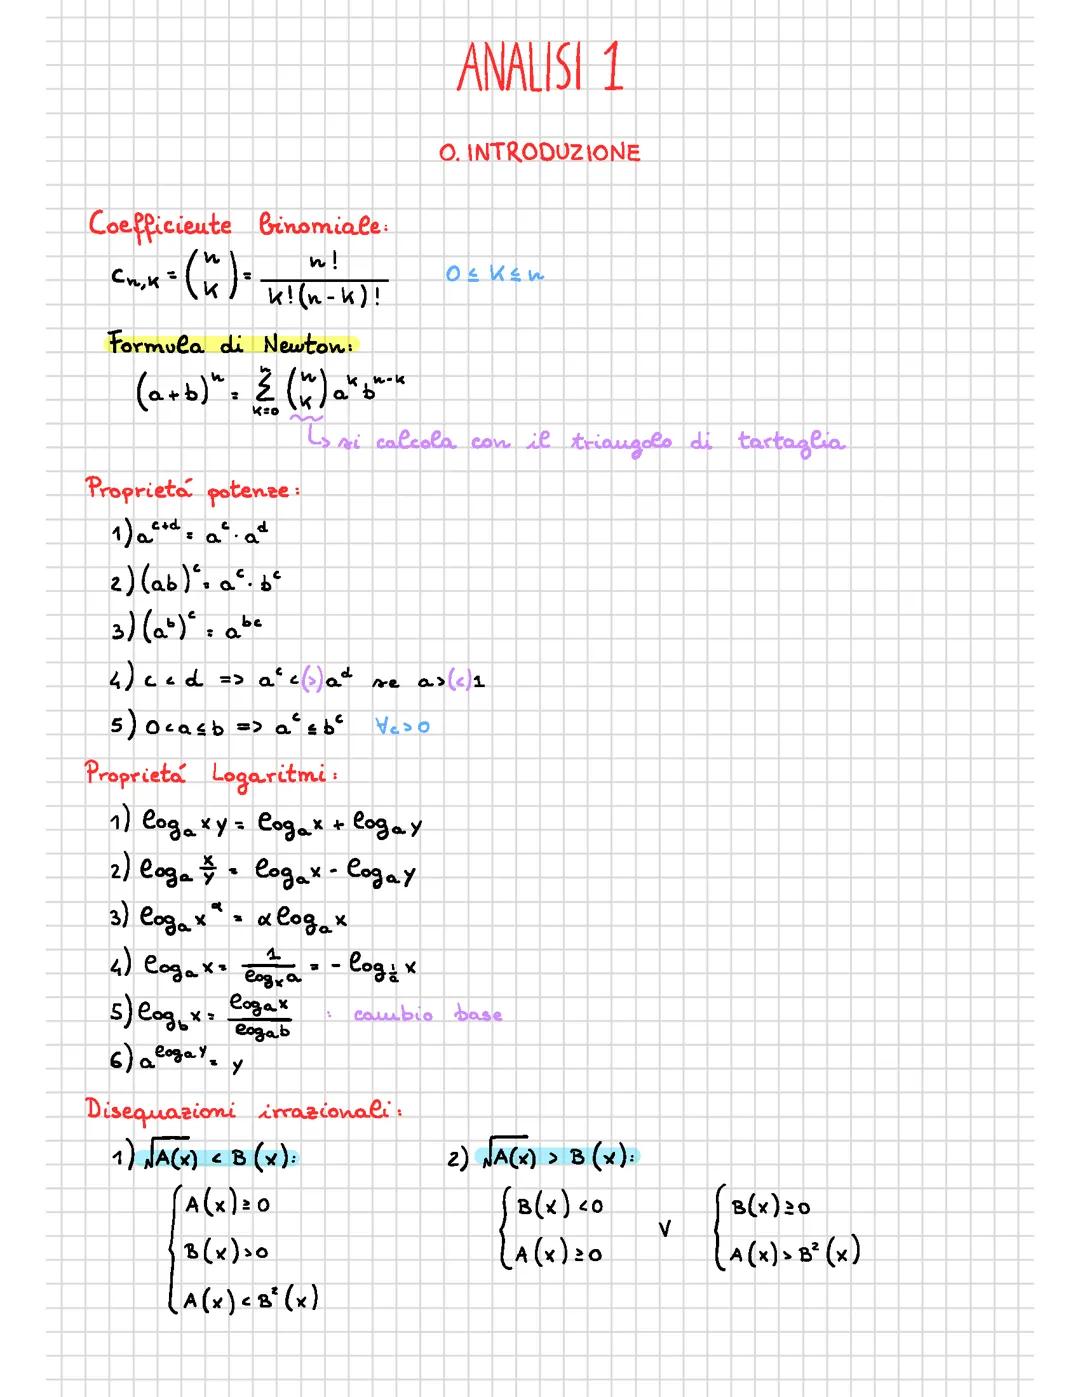 ANALISI 1
0. INTRODUZIONE
Coefficiente binomiale:
Cn,k = (n k) = n! / k!(n-k)!   0 ≤ K ≤ n
Formula di Newton:
(a+b)ⁿ = Σ_{K=0}^{n} (n k) a^k b^{n-k}
↳ si calcola con il triangolo di tartaglia
Proprietá potenze:
1) a^{c+d} = a^c · a^d
2) (ab)^c = a^c · b^c
3) (a^b)^c = a^{bc}
4) c < d => a^c <(>) a^d se a >(<) 1
5) 0<a≤b => a^c ≤ b^c   ∀c>0
Proprietá Logaritmi:
1) log_a xy = log_a x + log_a y
2) log_a x/y = log_a x - log_a y
3) log_a x^α = α log_a x
4) log_a x = 1/log_x a = - log_{1/a} x
5) log_b x = log_a x / log_a b : cambio base
6) a^{log_a y} = y
Disequazioni irrazionali:
1) √A(x) < B(x):   2) √A(x) > B(x):
{ A(x) ≥ 0   { B(x) < 0   V   { B(x) ≥ 0
B(x) > 0   A(x) ≥ 0   A(x) > B²(x)
A(x) < B²(x)